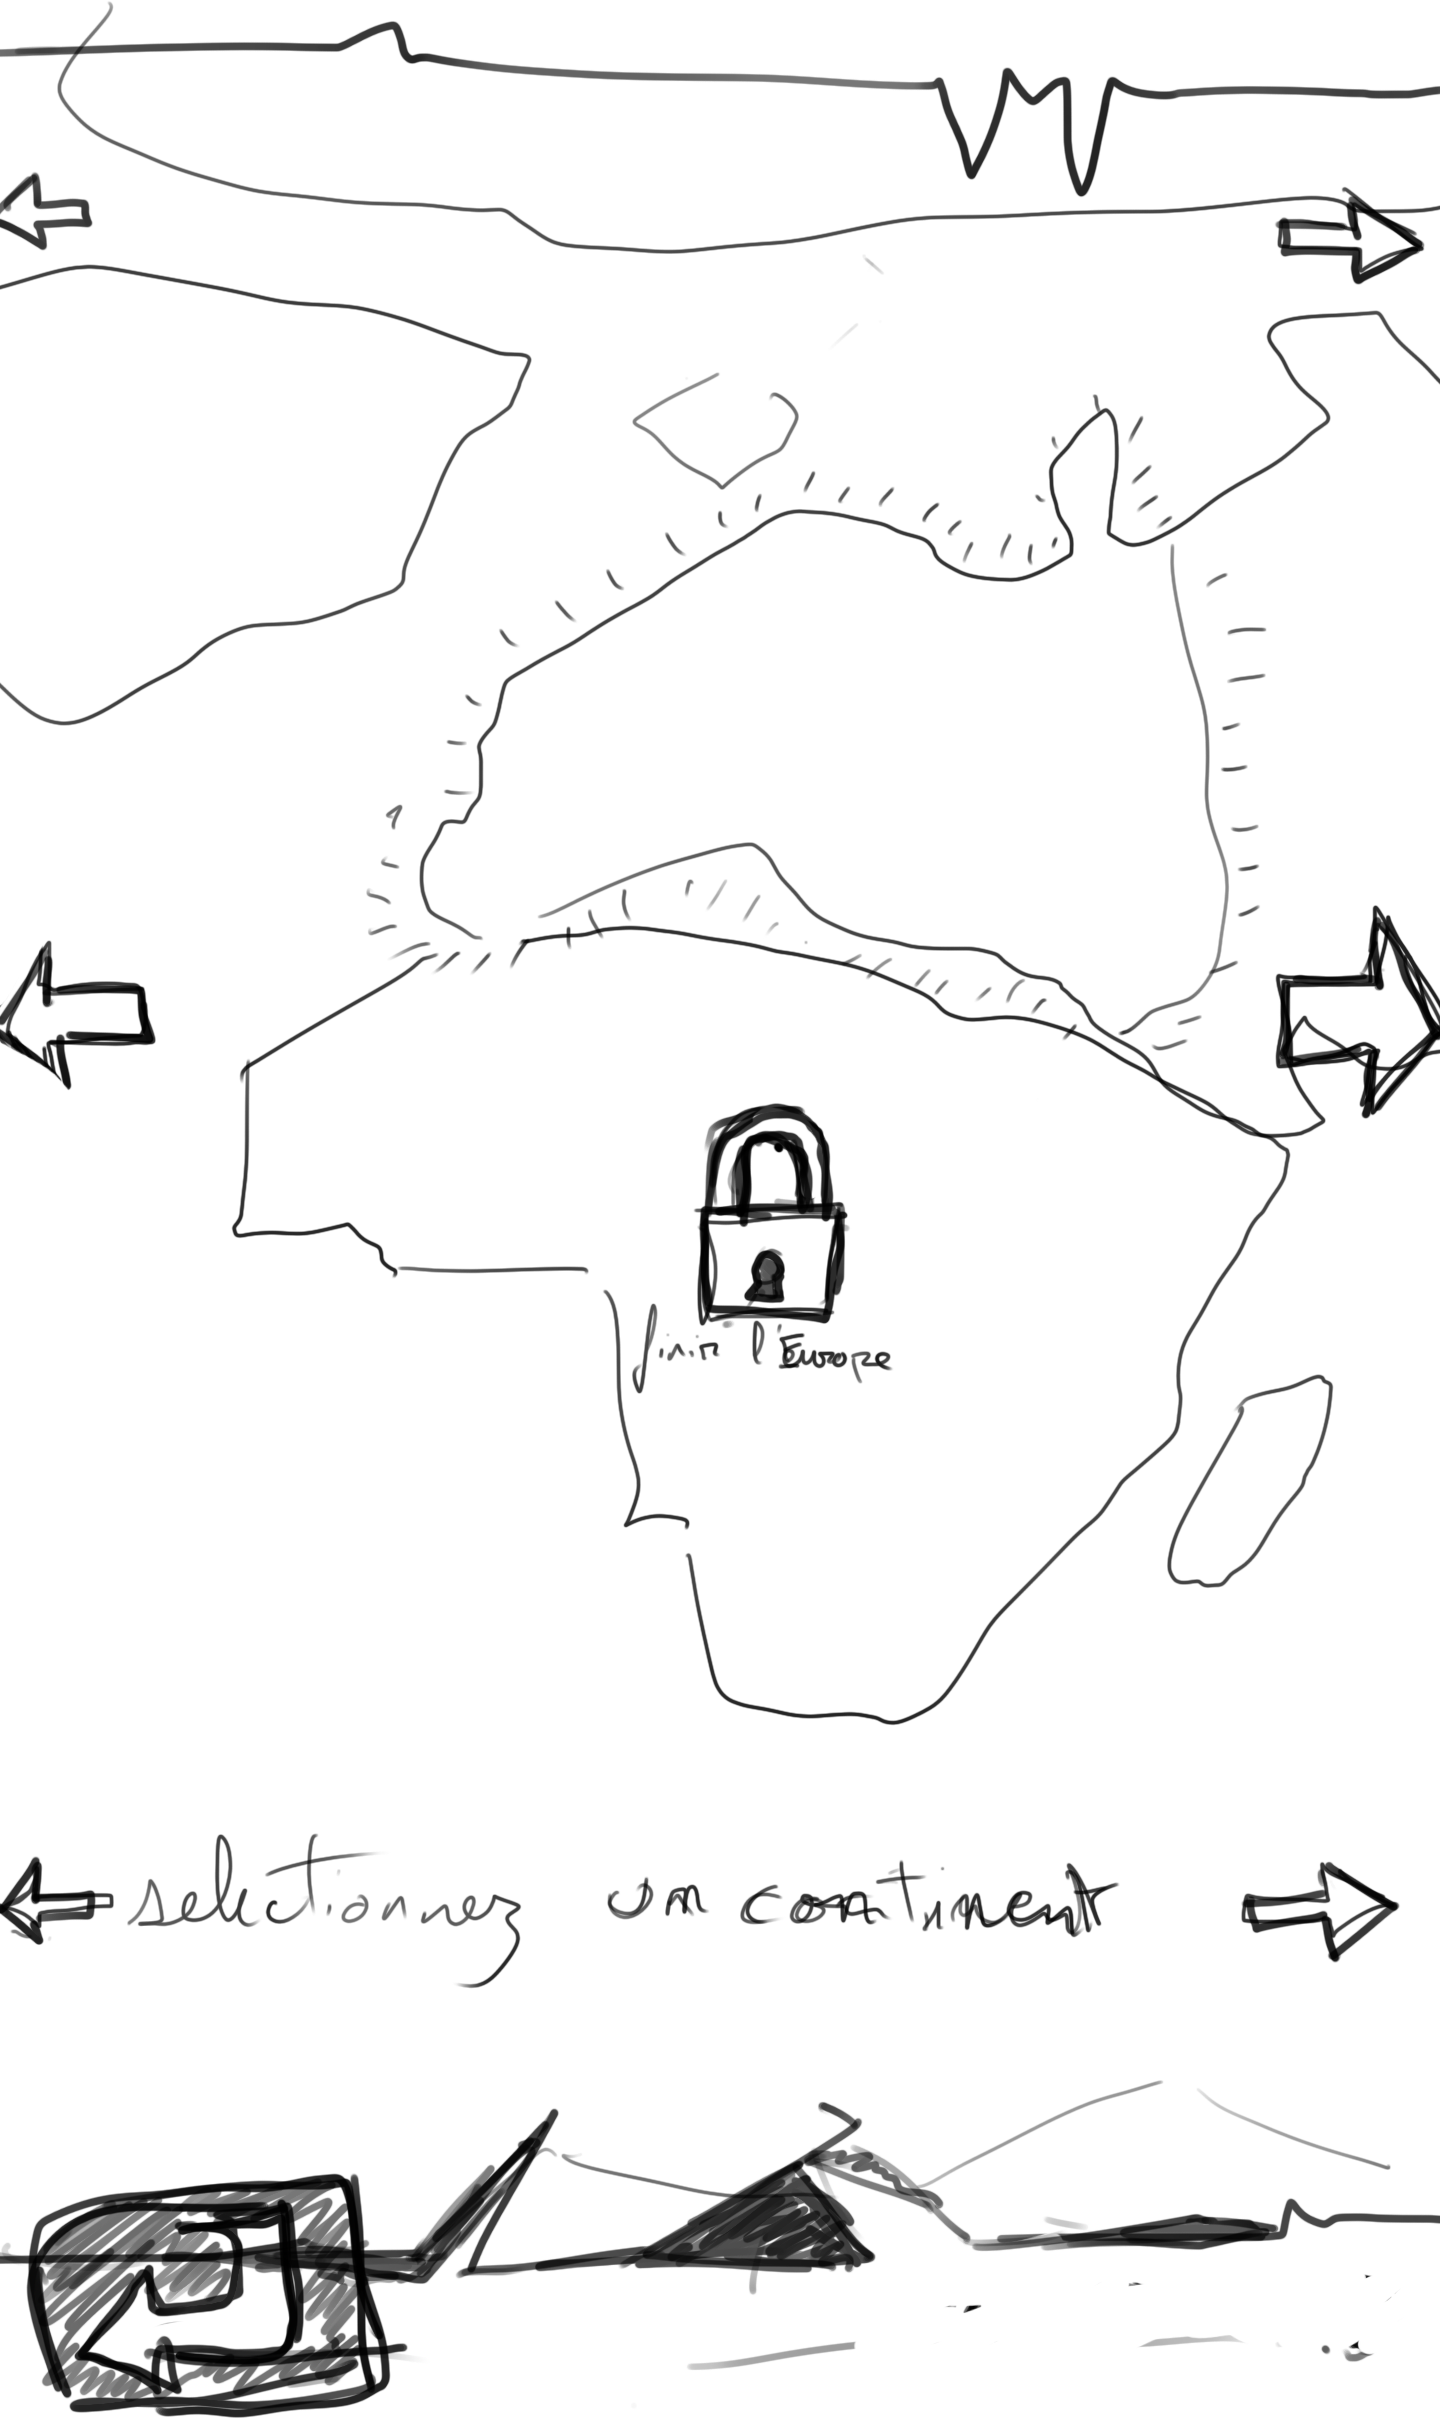 finir l'Europe
selectionnez un continent